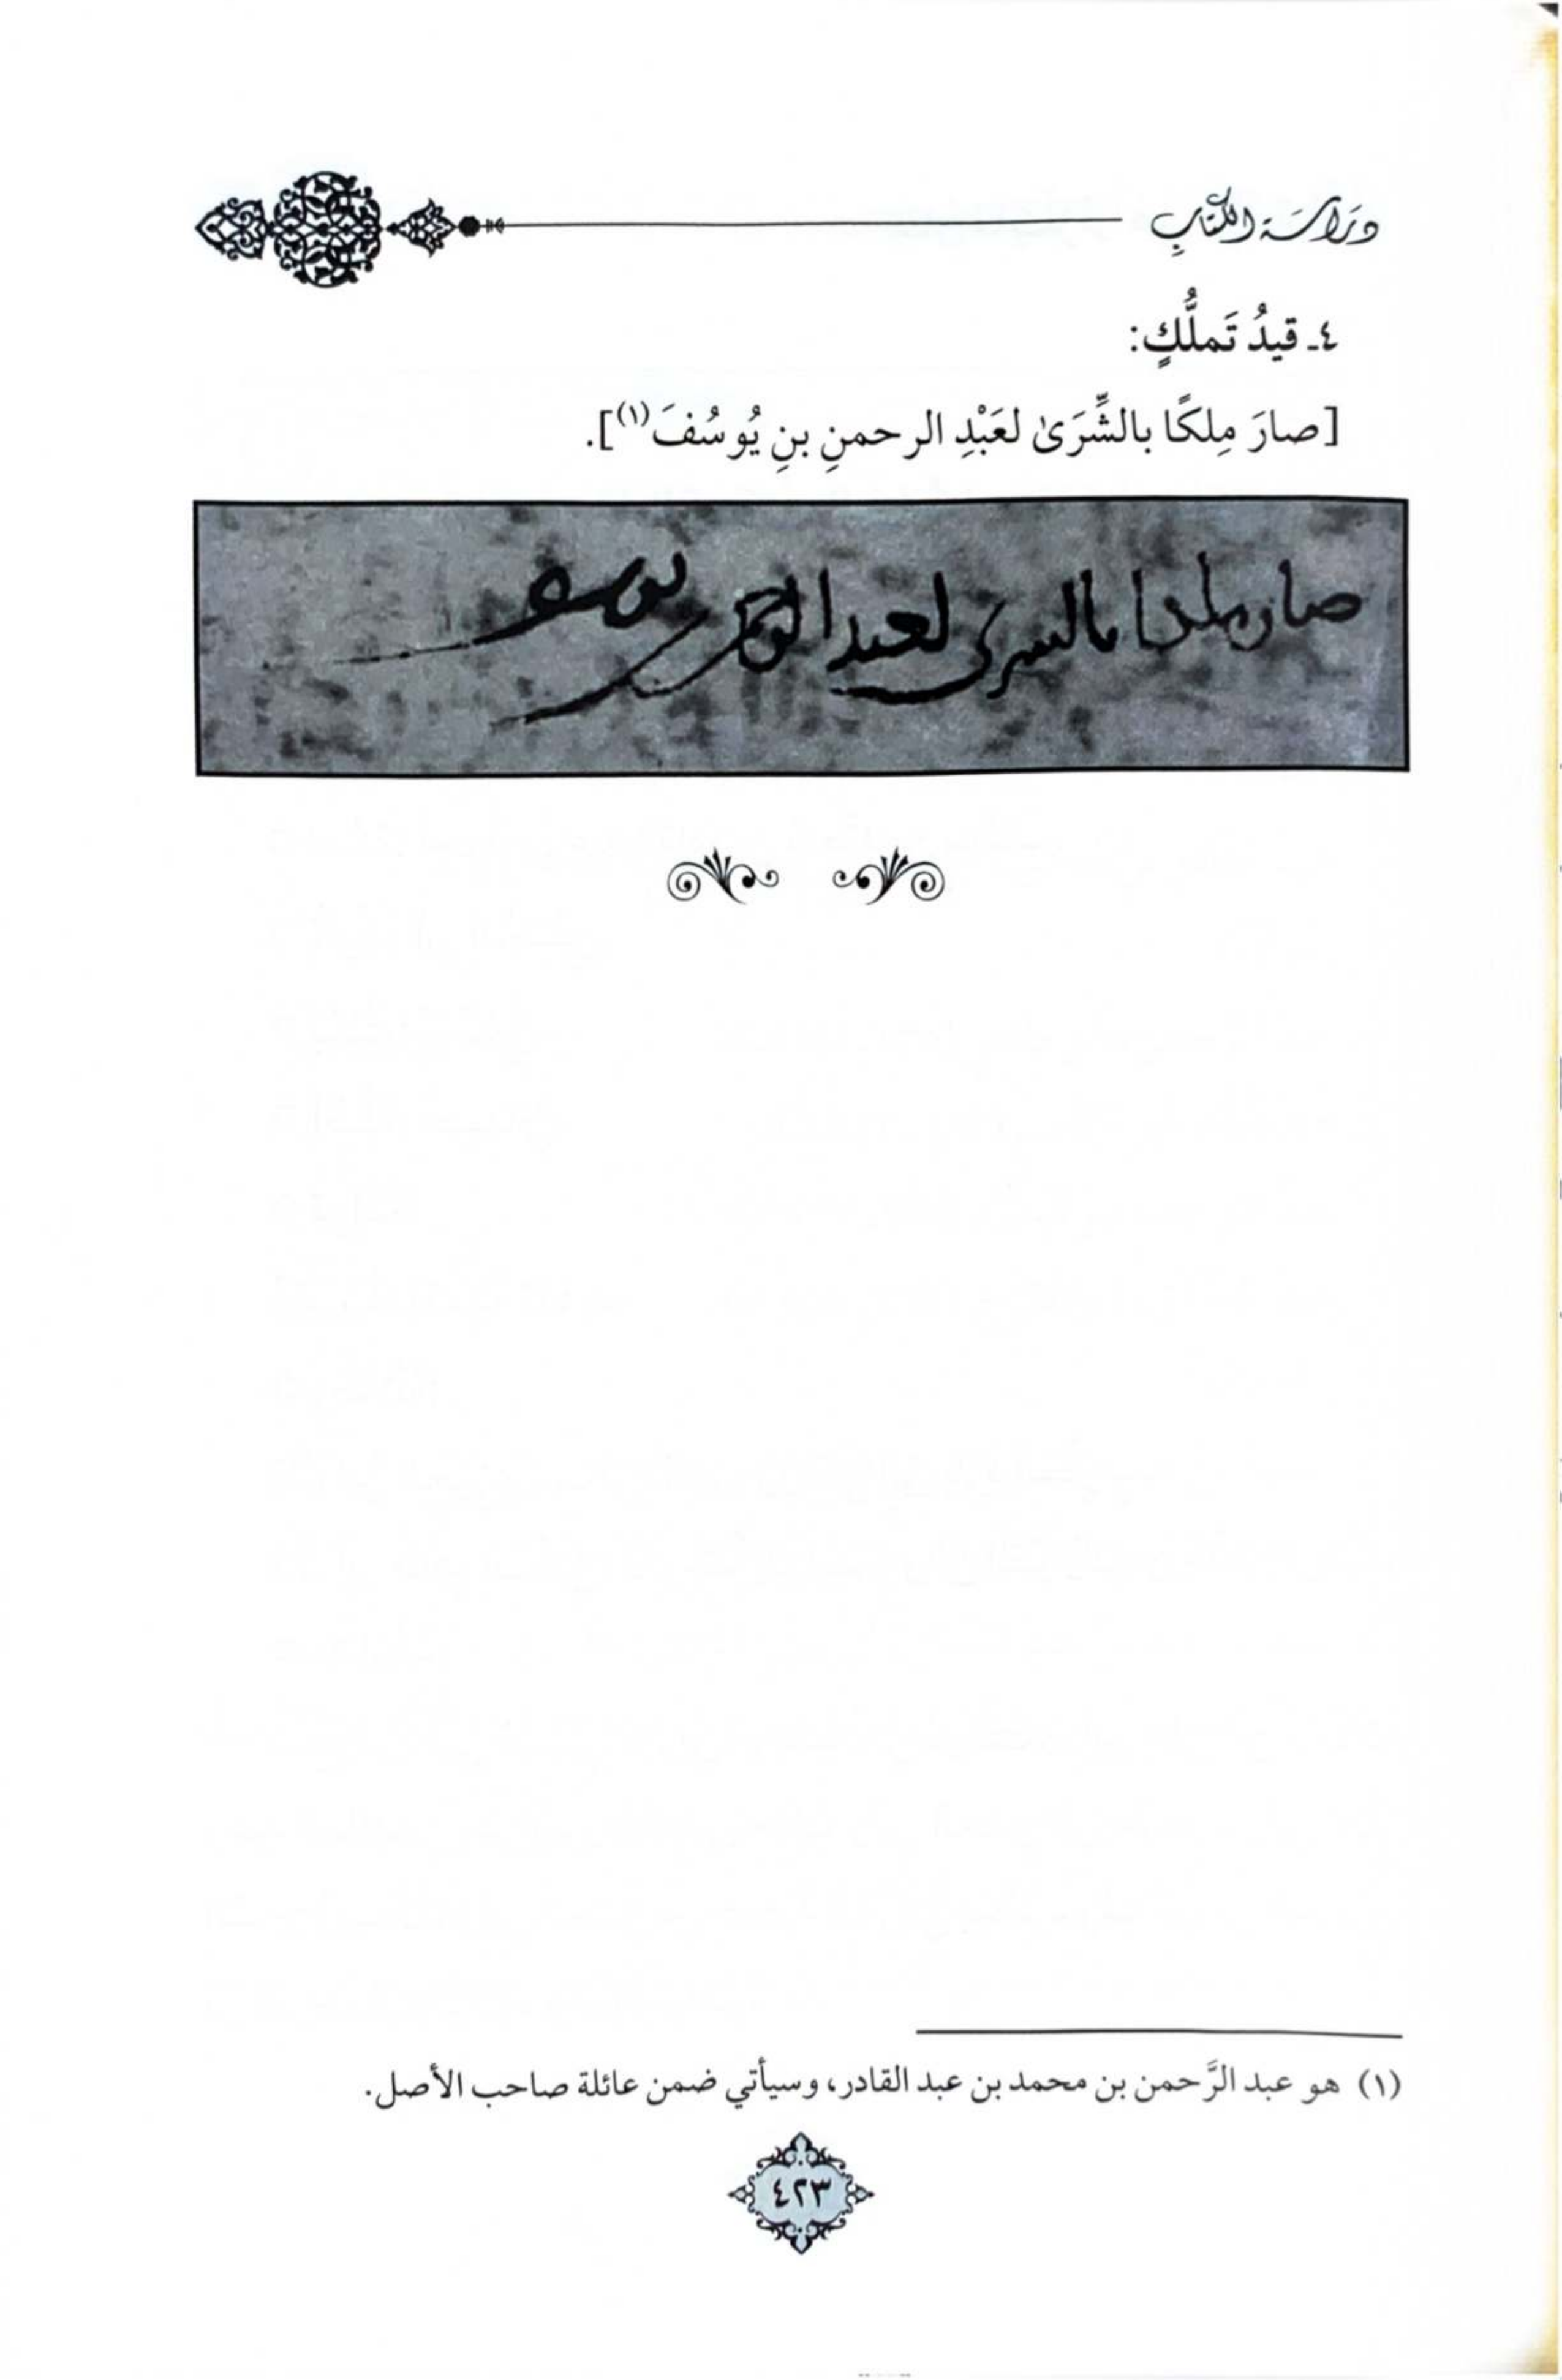 دراسة الكتاب
٤ـ قيدُ تَملُّكٍ:
[صارَ مِلكًا بالشِّرَىٰ لعَبْدِ الرحمنِ بنِ يُوسُفَ(١)].
صار ملكا بالسرى لعبد الرحمن يوسف
(١) هو عبد الرَّحمن بن محمد بن عبد القادر، وسيأتي ضمن عائلة صاحب الأصل.
٤٢٣